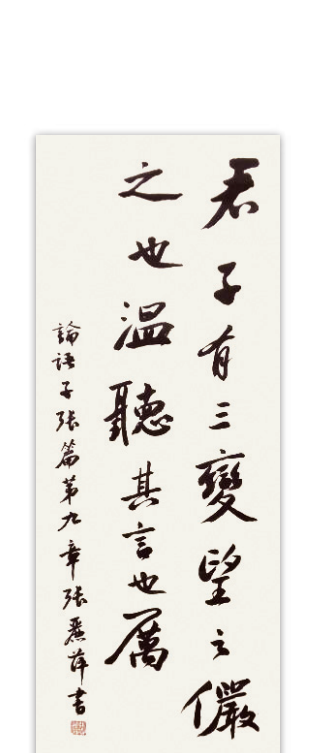 君子有三變望之儼
之也温聽其言也厲
論語子張篇第九章張書